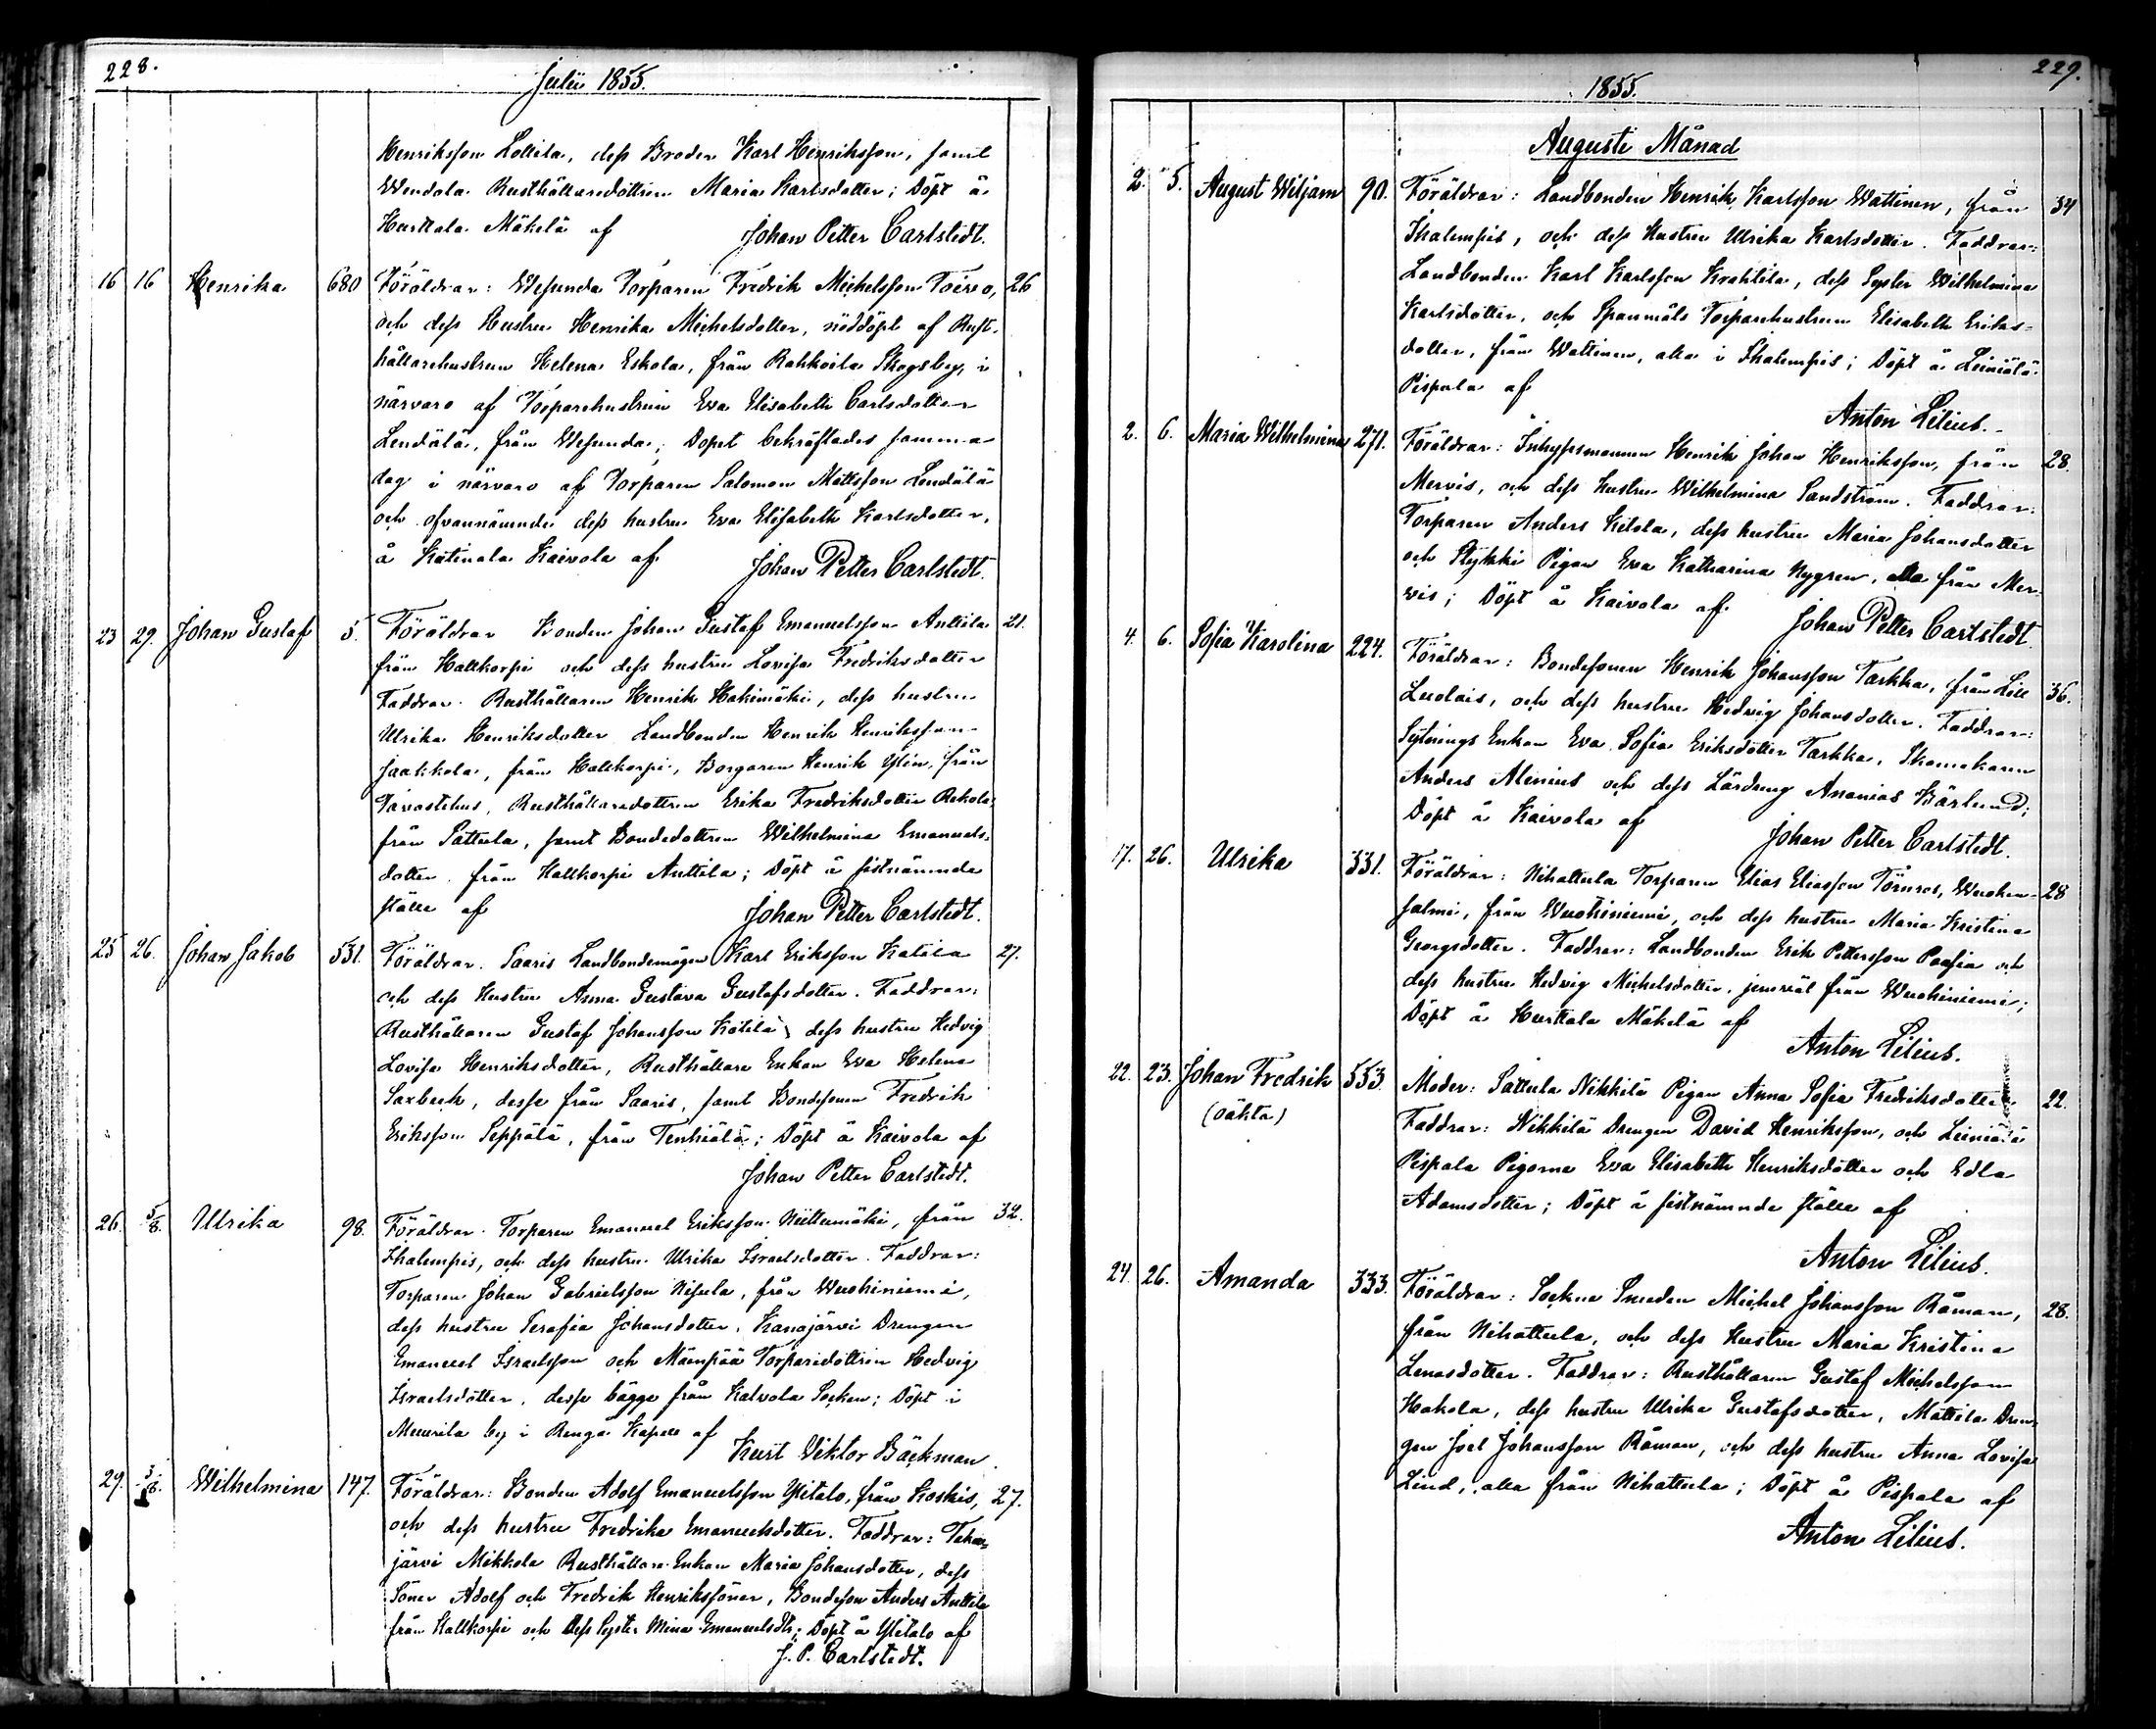 228.
Julii 1855.
Henriksson Lottila, dess Broder Karl Henriksson, samt
Wendala Rusthållaredottren Maria Karlsdotter; Döpt å
Hurttala Mäkelä af Johan Petter Carlstedt.
16 16 Henrika 680 Föräldrar: Wesunda Torparen Fredrik Michelsson Toivo, 26
och dess Hustru Henrika Michelsdotter, nöddöpt af Rust-
hållarehustrun Helena Eskola, från Rahkoila Skogsby, i
närvaro af Torparehustrun Eva Elisabeth Carlsdotter
Lendälä, från Wesunda; Dopet bekräftades samma
dag i närvaro af Torparen Salomon Mattsson Lendälä
och ofvannämnde dess hustru Eva Elisabeth Karlsdotter,
å Katinala Kaivola af Johan Petter Carlstedt.
23 29. Johan Gustaf 5. Föräldrar Bonden Johan Gustaf Emanuelsson Anttila 21.
från Hattkorpi och dess hustru Lovisa Fredriksdotter
Faddrar. Rusthållaren Henrik Hakimäki, dess hustru
Ulrika Henriksdotter Landbonden Henrik Henriksson
Jaakkola, från Hattkorpi, Borgaren Henrik Ylin, från
Tavastehus, Rusthållaredottren Erika Fredriksdotter Rekola
från Sattula, samt Bondedottren Wilhelmina Emanuels-
dotter från Hattkorpi Anttila; Döpt å sistnämnde
ställe af Johan Petter Carlstedt.
25 26. Johan Jakob 531. Föräldrar. Saaris Landbondemågen Karl Eriksson Katila 27.
och dess Hustru Anna Gustava Gustafsdotter. Faddrar:
Rusthållaren Gustaf Johansson Kätilä, dess hustru Hedvig
Lovisa Henriksdotter, Rusthållare Enkan Eva Helena
Saxbeck, desse från Saaris, samt Bondesonen Fredrik
Eriksson Seppälä, från Tenhiälä; Döpt å Kaivola af
Johan Petter Carlstedt.
26. 5/8. Ulrika 98. Föräldrar. Torparen Emanuel Eriksson Niittumäki, från 32.
Ihalempis, och dess hustru Ulrika Israelsdotter. Faddrar:
Torparen Johan Gabrielsson Nisula, från Wuohiniemi,
dess hustru Serafia Johansdotter, Kanajärvi Drengen
Emanuel Israelsson och Mäenpää Torparedottren Hedvig
Israelsdotter, desse bägge från Kalvola Socken; Döpt i
Muurila by i Renga Kapell af Kurt Viktor Bäckman.
29. 5/8. Wilhelmina 147. Föräldrar: Bonden Adolf Emanuelsson Ylitalo, från Koskis, 27.
och dess hustru Fredrika Emanuelsdotter. Faddrar:
järvi Mikkola Rusthållare-Enkan Maria Johansdotter, dess
Söner Adolf och Fredrik Henrikssöner, Bondeson Anders Anttila
från Hattkorpi och dess Syster Mina Emanuelsdtr; Döpt å Ylitalo af
J. P. Carlstedt.
229.
1855.
Augusti Månad
2. 5. August Wiljam 90. Föräldrar: Landbonden Henrik Karlsson Wattinen, från 34
Ihalempis, och dess Hustru Ulrika Karlsdotter. Faddrar:
Landbonden Karl Karlsson Krahtila, dess Syster Wilhelmina
Karlsdotter, och Spannmåls Torparehustrun Elisabeth Eriks-
dotter, från Wattinen, alla i Ihalempis; Döpt å Leiniälä
Pispala af
Anton Lilius.
2. 6. Maria Wilhelmina 271. Föräldrar: Inhysesmannen Henrik Johan Henriksson, från 28.
Mervis, och dess hustru Wilhelmina Sandström. Faddrar:
Torparen Anders Ketola, dess hustru Maria Johansdotter
och Stykki Pigan Eva Katharina Nygren, alla från Mer-
vis; Döpt å Kaivola af Johan Petter Carlstedt.
4. 6. Sofia Karolina 224. Föräldrar: Bondesonen Henrik Johansson Tarkka, från Lill 36.
Luolais, och dess hustru Hedvig Johansdotter. Faddrar:
Sytnings Enkan Eva Sofia Eriksdotter Tarkka, Skomakaren
Anders Alenius och dess Lärdreng Ananias Bärlund;
Döpt å Kaivola af Johan Petter Carlstedt.
17. 26. Ulrika 331. Föräldrar: Nihattula Torparen Elias Eliasson Törnros, Wuohen- 28
salmi, från Wuohiniemi, och dess hustru Maria Kristina
Georgsdotter. Faddrar: Landbonden Erik Pettersson Paasia och
dess hustru Hedvig Michelsdotter, jemväl från Wuohiniemi;
Döpt å Hurttala Mäkelä af
Anton Lilius.
22. 23. Johan Fredrik 553. Moder: Sattula Nikkilä Pigan Anna Sofia Fredriksdotter 22.
(oäkta) Faddrar: Nikkilä Drengen David Henriksson, och Leiniälä
Pispala Pigorna Eva Elisabeth Henriksdotter och Edla
Adamsdotter; Döpt å sistnämnde ställe af
Anton Lilius.
24. 26. Amanda 333. Föräldrar: Sockne Smeden Michel Johansson Råman, 28.
från Nihattula, och dess Hustru Maria Kristina
Lenasdotter. Faddrar: Rusthållaren Gustaf Michelsson
Hakola, dess hustru Ulrika Gustafsdotter, Mattila Dren-
gen Joel Johansson Råman, och dess hustru Anna Lovisa
Lind, alla från Nihattula; Döpt å Pispala af
Anton Lilius.